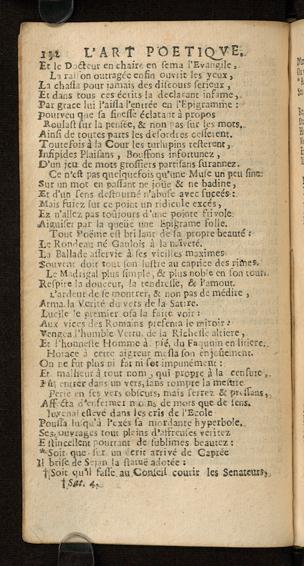 132 L'ART POETIQVE.
Et le Docteur en chaire en sema l'Evangile.
La raison outragée enfin ouvrit les yeux,
La chassa pour jamais des discours serieux,
Et dans tous ces écrits la declarant infame,
Par grace lui laissa l'entrée en l'Epigramme:
pourveu que sa finesse éclatant à propos
Roulast sur la pensée, & non pas sur les mots.
Ainsi de toutes parts les desordres cesserent.
Toutefois à la Cour les turlupins resterent,
Insipides Plaisans, Bouffons infortunez,
D'un jeu de mots grossiers partisans surannez.
Ce n'est pas quelquefois qu'une Muse un peu fine
Sur un mot en passant ne joüe & ne badine,
Et d'un sens destourné n'abuse avec succés:
Mais fuiez sur ce point un ridicule excés,
Et n'allez pas toûjours d'une pointe frivole
Aiguiser par la queuë une Epigrame folle.
Tout Poëme est brillant de sa propre beauté:
Le Rondeau né Gaulois à la naïveté.
La Ballade asservie à ses vieilles maximes
Souvent doit tout son lustre au caprice des rimes.
Le Madrigal plus simple, & plus noble en son tour,
Respire la douceur, la tendresse, & l'amout.
L'ardeur de se montrer, & non pas de médire,
Arma la Verité du vers de la Satire.
Lucile le premier osa la faire voir:
Aux vices des Romans presenta le miroir:
Vengea l'humble Vertu, de la Richesse altiere,
Et l'honneste Homme à pié, du Faquin en litiere.
Horace à cette aigreur mesla son enjoüement.
On ne fut plus ni fat ni sot impunément:
Et malheur à tout nom, qui propre à la censure,
Pût entrer dans un vers, sans rompre la mesure
Perse en ses vers obscurs, mais serrez & pressans,
Affecta d'enfermer moins de mots que de sens.
Juvenal eslevé dans les cris de l'Ecole
Poussa jusqu'à l'exés sa mordante hyperbole.
Ses ouvrages tout pleins d'affreuses veritez
Estincellent pourtant de sublimes beautez:
*Soit que sur un écrit arrivé de Caprée
Il brise de Sejan la statuë adotée:
†Soit qu'il fasse au Conseil courir les Senateurs,
†Sat. 4.